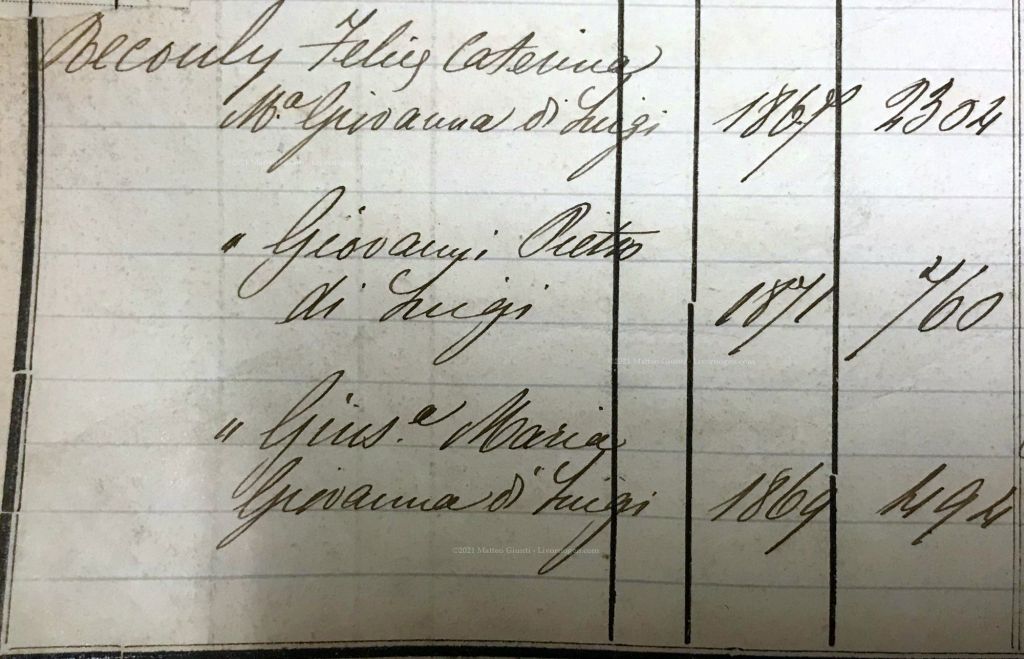 Beconly Felice Caterina
M.ª Giovanna di Luigi 1867 2304
" Giovanni Pietro
di Luigi 1871 760
" Gius.ª Maria
Giovanna di Luigi 1869 494
©2021 Matteo Giunti - Livornogen.com